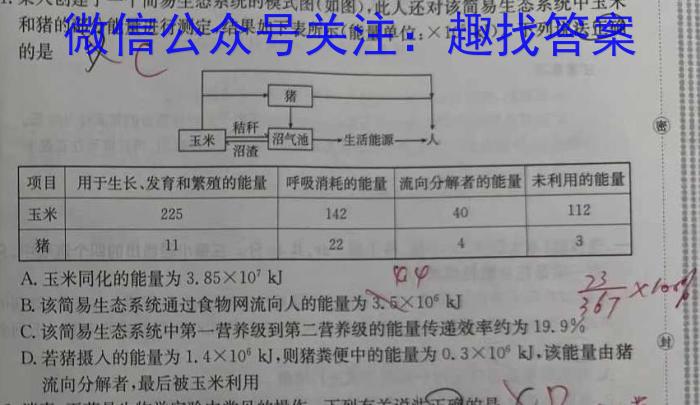 某人创建了一个简易生态系统的模式图(如图),此人还对该简易生态系统中玉米
和猪的
能量进行测定,结果如下表所示(能量单位:×10
的是
微信公众号关注:趣找答案
猪
玉米 秸秆 沼渣 沼气池 生活能源 人
密
项目 用于生长、发育和繁殖的能量 呼吸消耗的能量 流向分解者的能量 未利用的能量
玉米 225 142 40 112
猪 11 22 4 3
A. 玉米同化的能量为 3.85×10⁷ kJ
44
B. 该简易生态系统通过食物网流向人的能量为 3.5×10⁶ kJ
23/367×100%
C. 该简易生态系统中第一营养级到第二营养级的能量传递效率约为 19.9%
D. 若猪摄入的能量为 1.4×10⁶ kJ,则猪粪便中的能量为 0.3×10⁶ kJ,该能量由猪
封
流向分解者,最后被玉米利用
生物学实验中常见的操作,下列有关说法正确的是